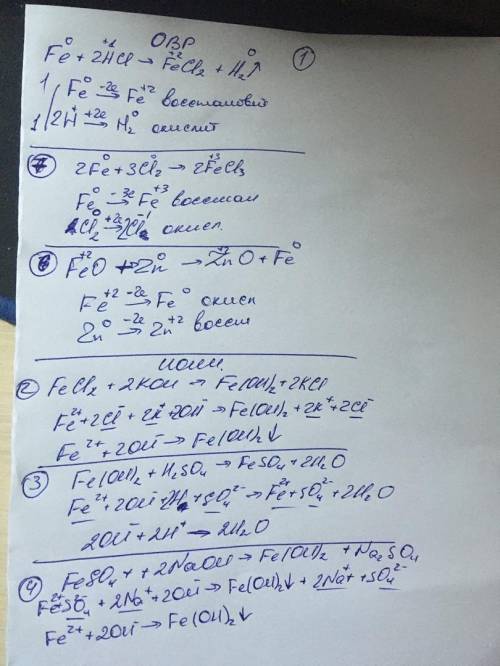 ОВР
Fe⁰ + 2H⁺¹Cl → Fe⁺²Cl₂ + H₂⁰↑ ①
1 | Fe⁰ -2e→ Fe⁺² восстановит
1 | 2H⁺ +2e→ H₂⁰ окислит
⑦ 2Fe⁰ + 3Cl₂⁰ → 2Fe⁺³Cl₃
Fe⁰ -3e→ Fe⁺³ восстан
Cl₂⁰ +2e→ 2Cl⁻¹ окисл.
⑥ Fe⁺²O + Zn⁰ → Zn⁺²O + Fe⁰
Fe⁺² -2e→ Fe⁰ окисл
Zn⁰ -2e→ Zn⁺² восст
ионн.
② FeCl₂ + 2KOH → Fe(OH)₂ + 2KCl
Fe²⁺ + 2Cl⁻ + 2K⁺ + 2OH⁻ → Fe(OH)₂ + 2K⁺ + 2Cl⁻
Fe²⁺ + 2OH⁻ → Fe(OH)₂↓
③ Fe(OH)₂ + H₂SO₄ → FeSO₄ + 2H₂O
Fe²⁺ + 2OH⁻ + 2H⁺ + SO₄²⁻ → Fe²⁺ + SO₄²⁻ + 2H₂O
2OH⁻ + 2H⁺ → 2H₂O
④ FeSO₄ + 2NaOH → Fe(OH)₂ + Na₂SO₄
Fe²⁺ SO₄²⁻ + 2Na⁺ + 2OH⁻ → Fe(OH)₂↓ + 2Na⁺ + SO₄²⁻
Fe²⁺ + 2OH⁻ → Fe(OH)₂↓